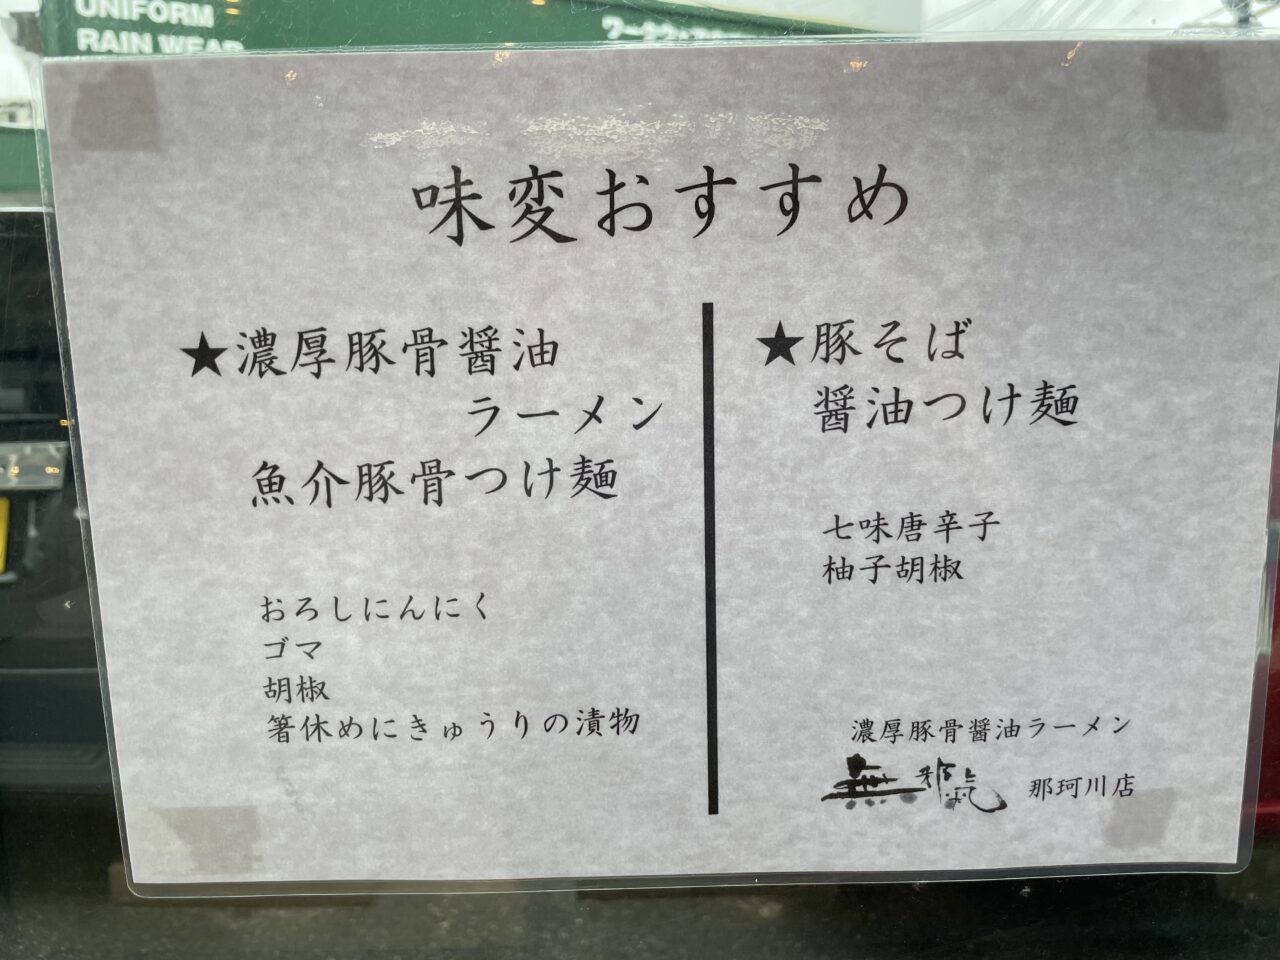 UNIFORM
RAIN WEAR
味変おすすめ
★濃厚豚骨醤油
ラーメン
魚介豚骨つけ麺
おろしにんにく
ゴマ
胡椒
箸休めにきゅうりの漬物
★豚そば
醤油つけ麺
七味唐辛子
柚子胡椒
濃厚豚骨醤油ラーメン
無邪気 那珂川店